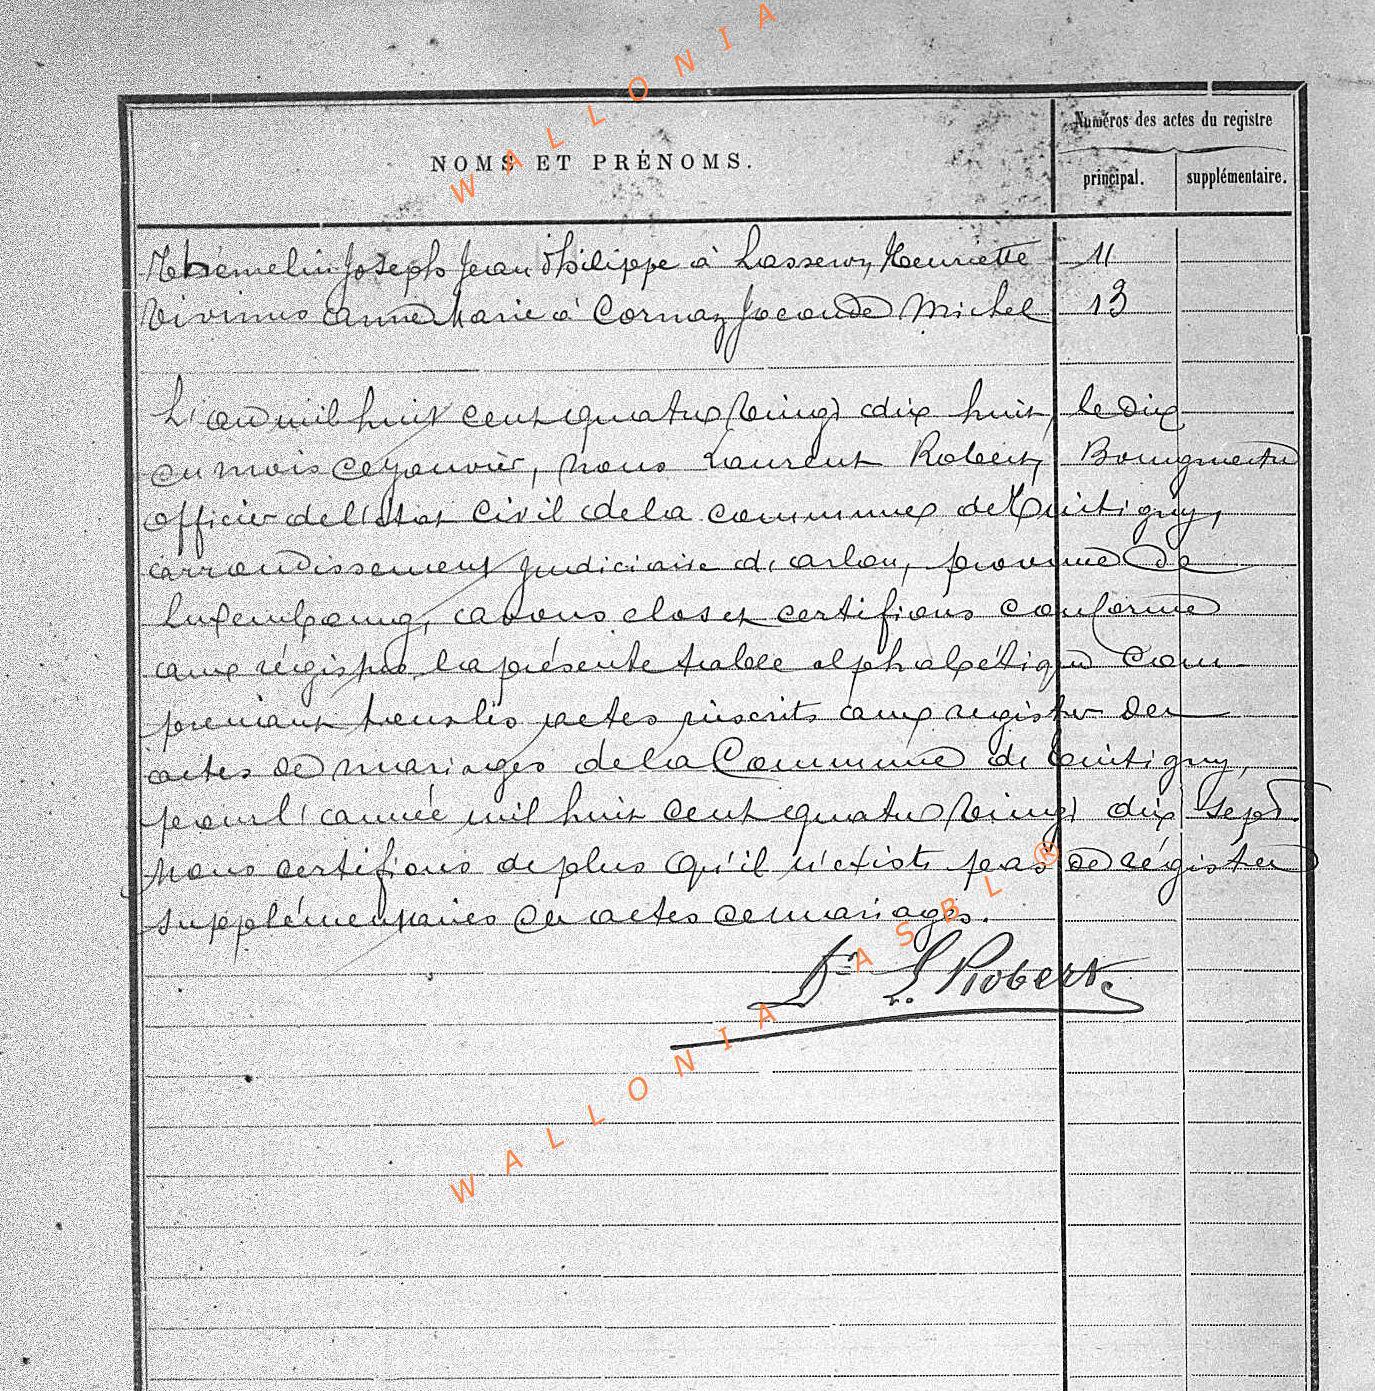 WALLONIA ASBL®
Numéros des actes du registre
NOMS ET PRÉNOMS.
principal. supplémentaire.
Thémelin Joseph Jean Philippe à Henriette 11
Anne Marie à Cornaz Joconde Michel 13
L'an mil huit cent quatre vingt dix huit, le dix
du mois de janvier, nous Laurent Robert, Bourgmestre
officier de l'état civil de la commune de Tintigny,
arrondissement judiciaire d'arlon, province de
Luxembourg, avons clos et certifions conforme
aux régistres la présente table alphabétique com
prenant tous les actes inscrits aux registre des
actes de mariages de la Commune de Tintigny,
pour l'année mil huit cent quatre vingt dix sept
nous certifions de plus qu'il n'existe pas de régistre
supplémentaires des actes de mariages.
Dr L. Robert
WALLONIA